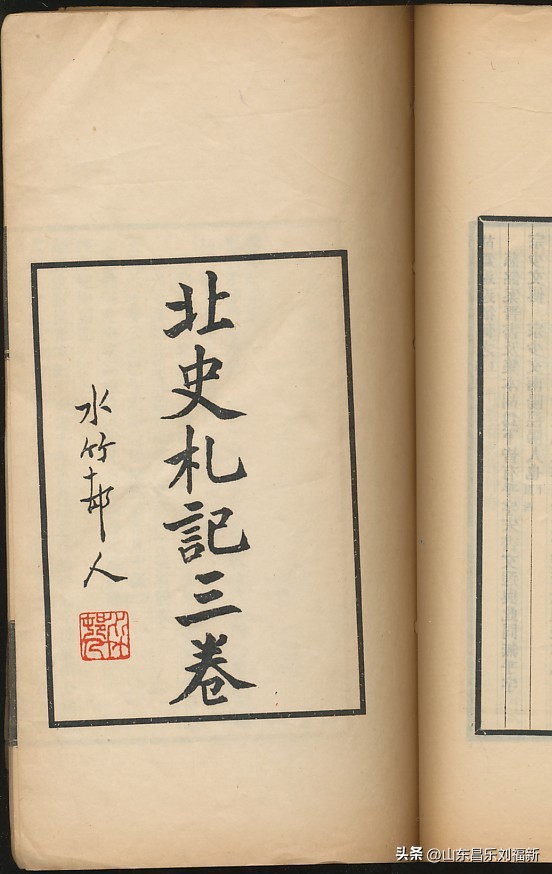 北史札記三卷
水竹邨人
水竹
邨人
头条 @山东昌乐刘福新